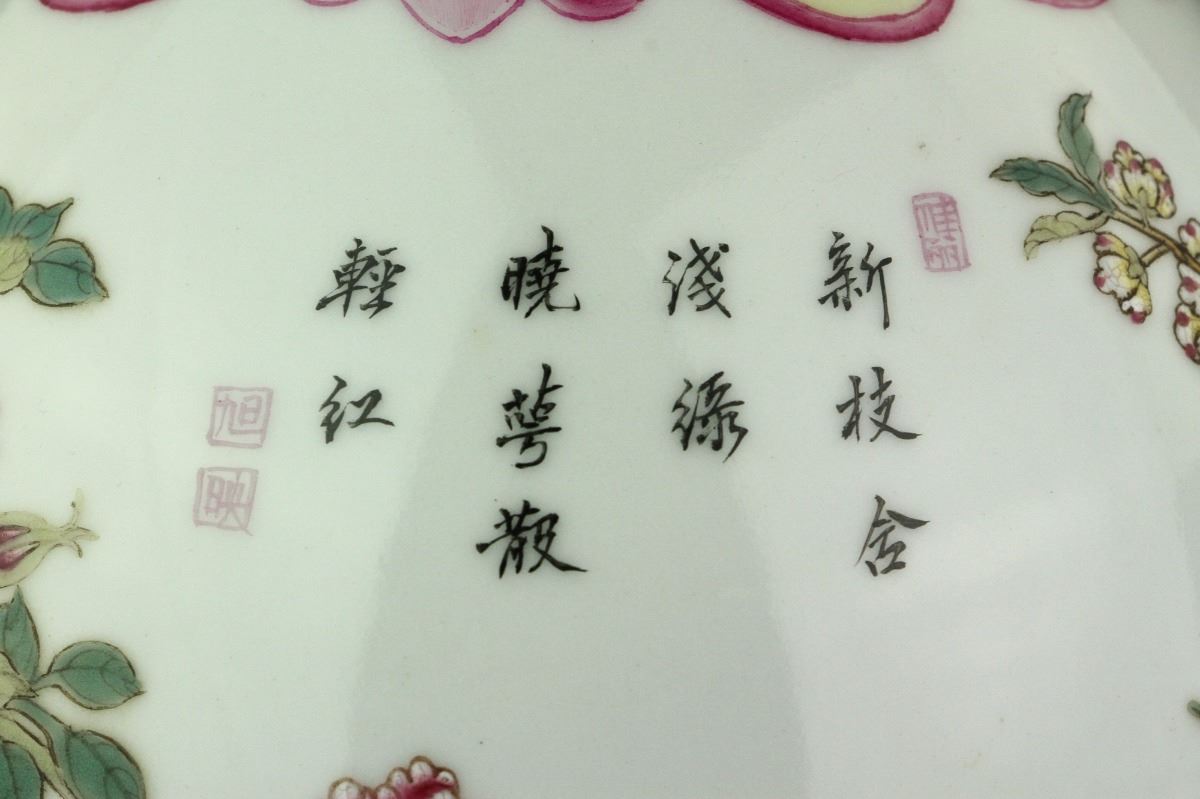 佳
新枝含
淺綠
曉萼散
輕紅
旭
映